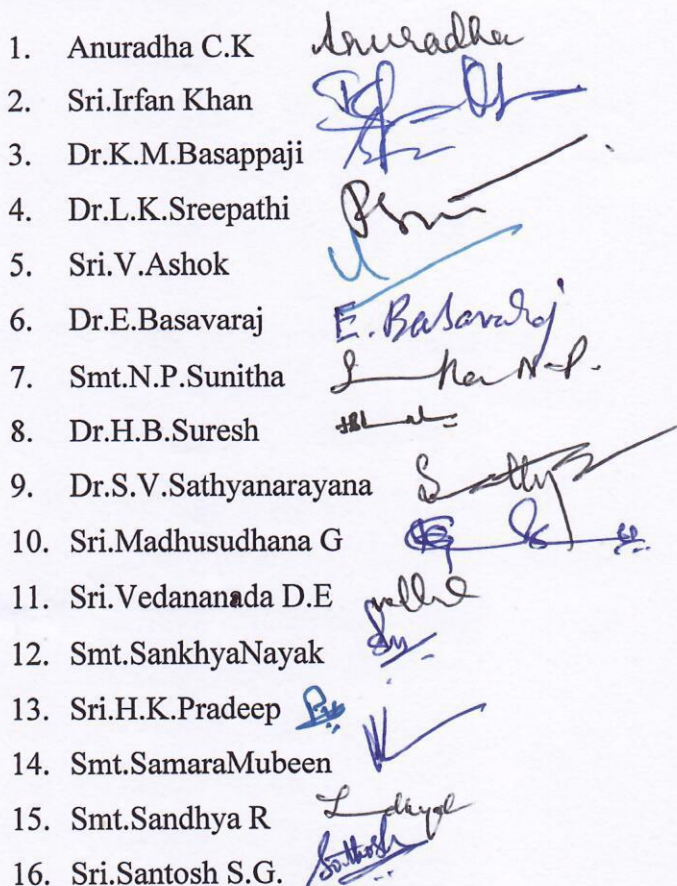 1. Anuradha C.K Anuradha
2. Sri.Irfan Khan
3. Dr.K.M.Basappaji
4. Dr.L.K.Sreepathi
5. Sri.V.Ashok
6. Dr.E.Basavaraj E. Basavaraj
7. Smt.N.P.Sunitha
8. Dr.H.B.Suresh
9. Dr.S.V.Sathyanarayana
10. Sri.Madhusudhana G
11. Sri.Vedananada D.E
12. Smt.SankhyaNayak
13. Sri.H.K.Pradeep
14. Smt.SamaraMubeen
15. Smt.Sandhya R
16. Sri.Santosh S.G. Santhosh